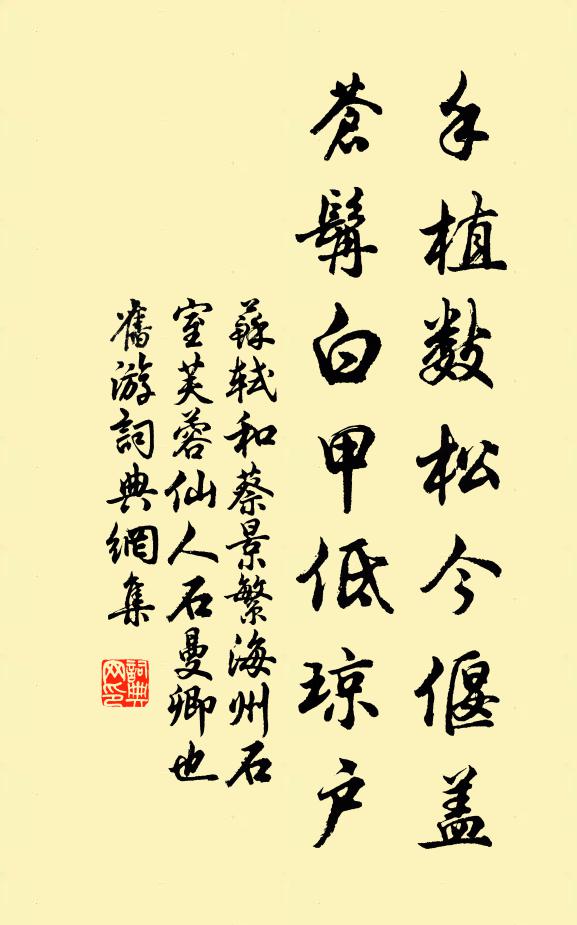 手植数松今偃盖
蒼髯白甲低琼户
蘇軾和蔡景繁海州石
室芙蓉仙人石曼卿也
舊游詞典網集
詞典
网印